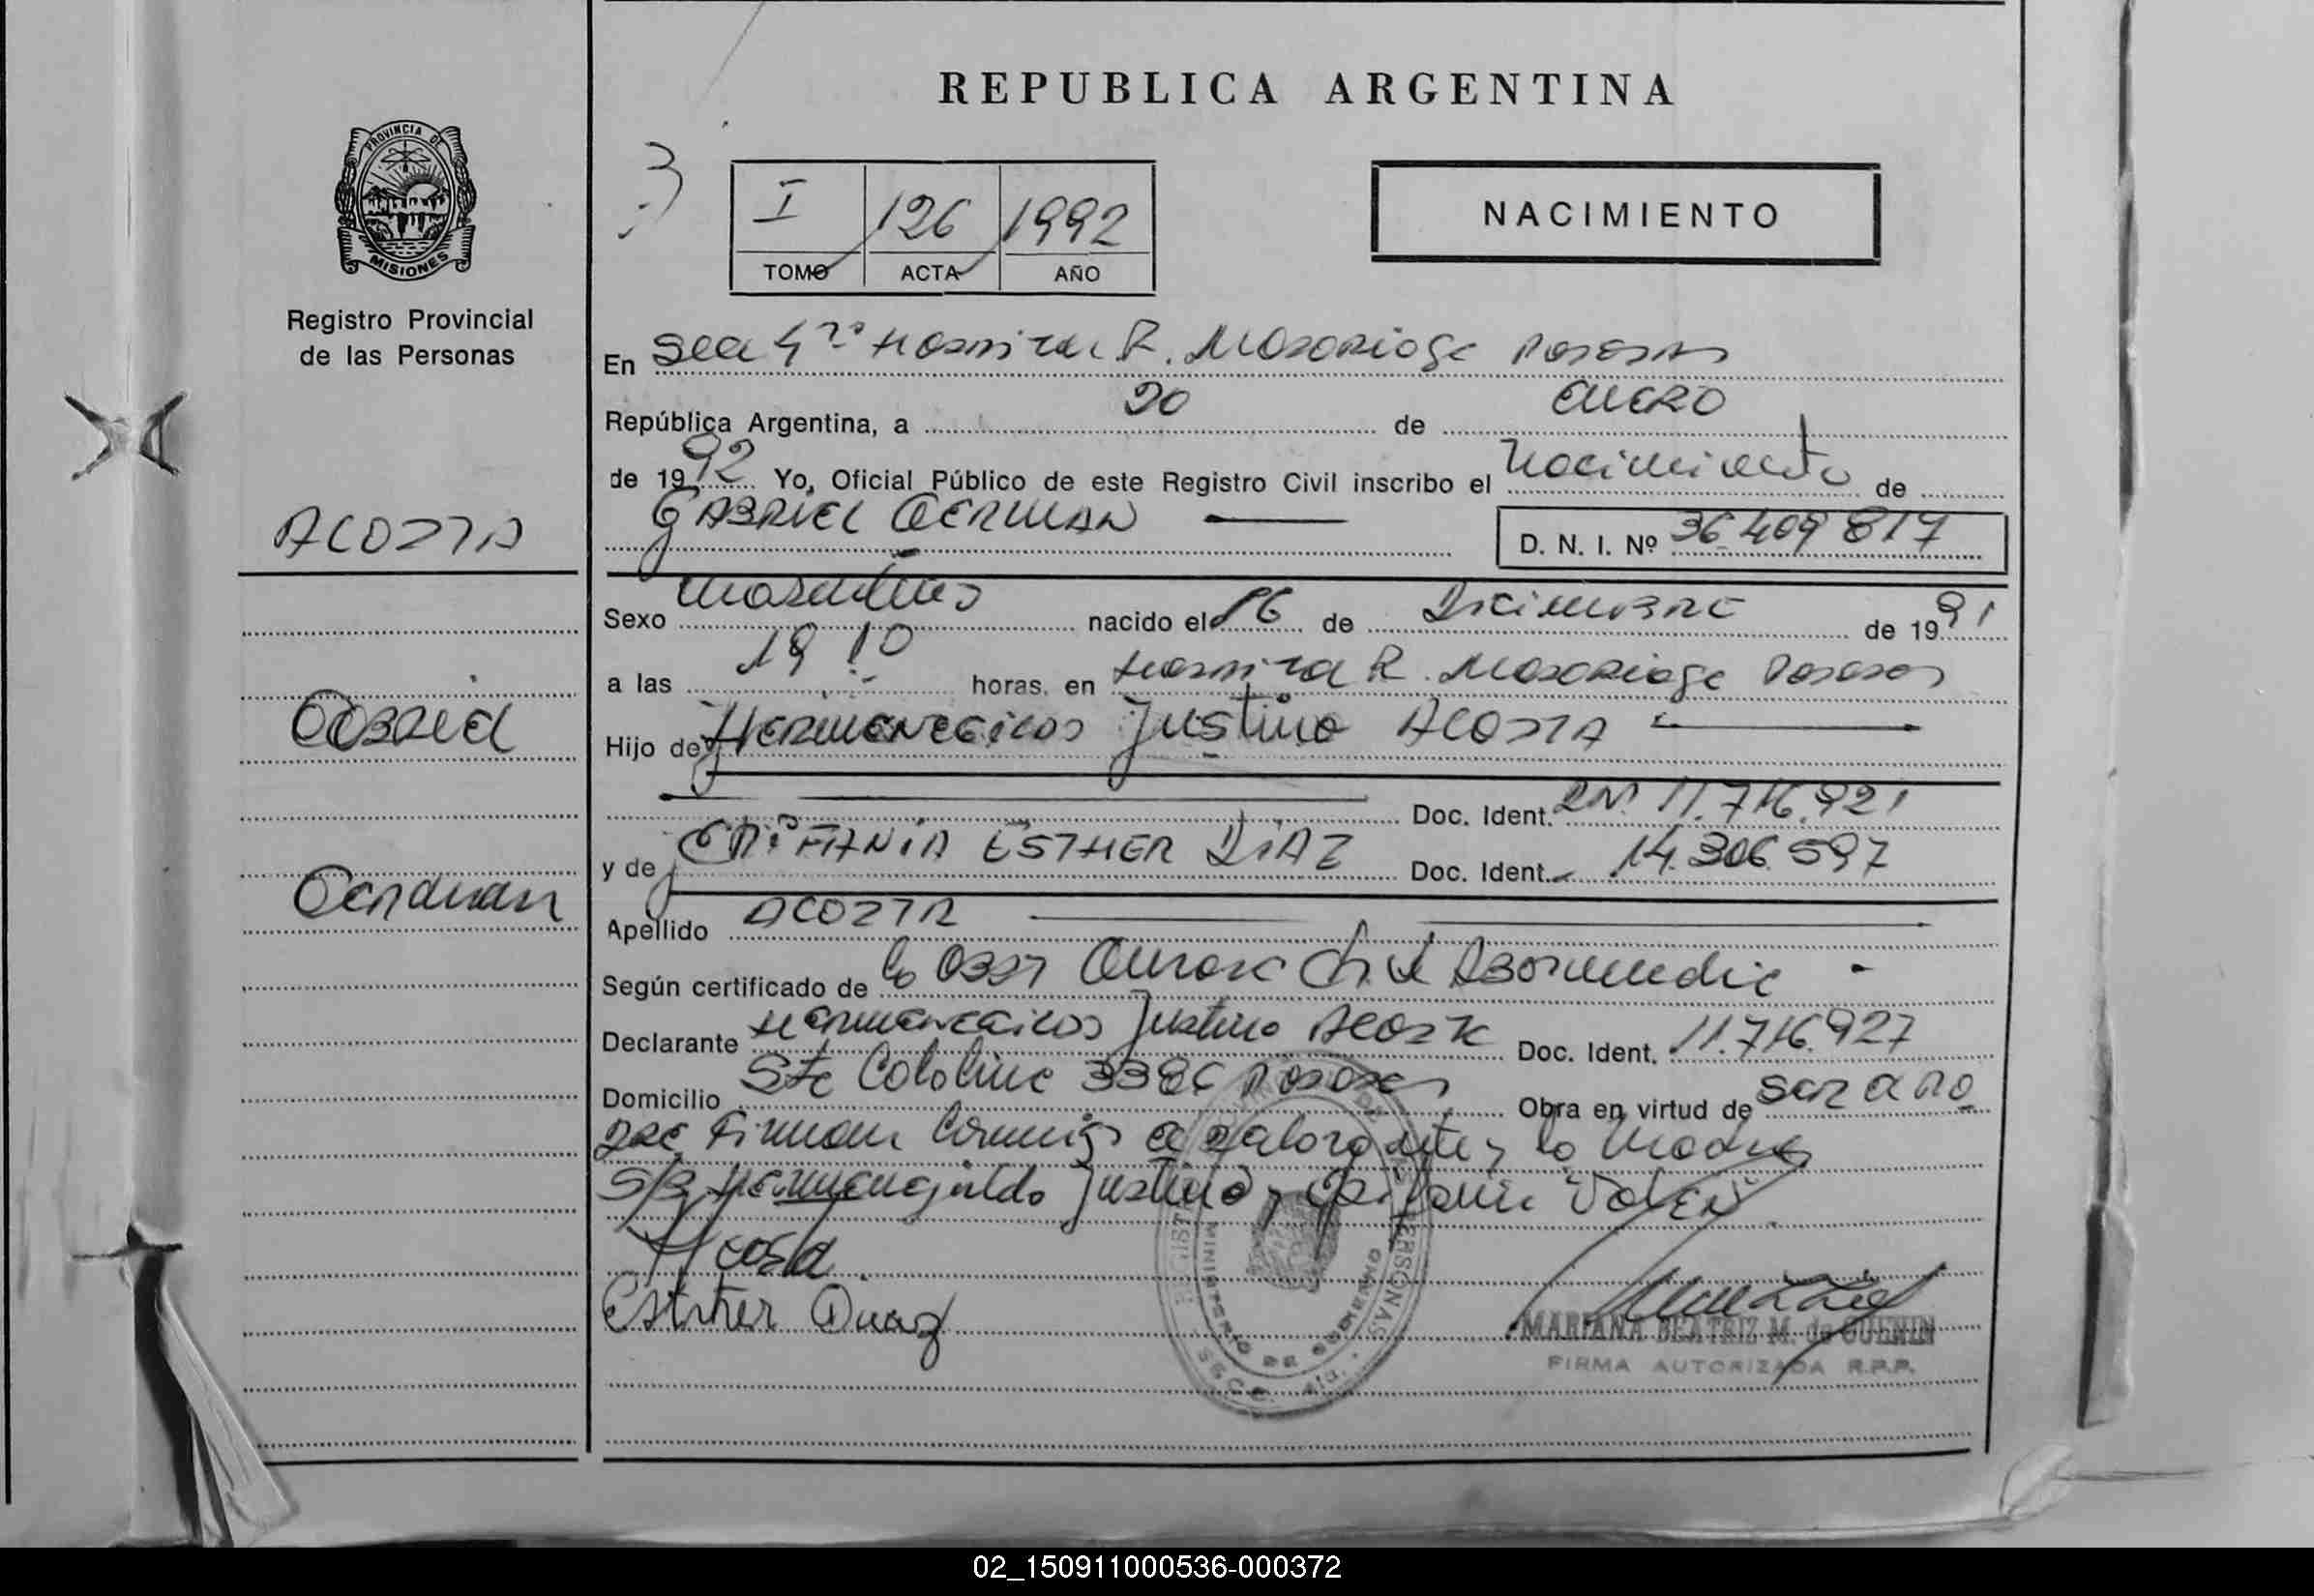 REPUBLICA ARGENTINA
PROVINCIA DE
MISIONES
Registro Provincial
de las Personas
3
I 126 1992
TOMO ACTA AÑO
NACIMIENTO
En Hospital R. Madariaga Posadas
República Argentina, a 20 de ENERO
de 1992 Yo, Oficial Público de este Registro Civil inscribo el Nacimiento de
GABRIEL GERMAN D. N. I. Nº 36 409 817
ACOSTA
Sexo Masculino nacido el 26 de Diciembre de 1991
a las 19 10 horas, en Hospital R. Madariaga Posadas
Hijo de Hermenegildo Justino ACOSTA
Gabriel
Doc. Ident. 11.716.921
y de EPIFANIA ESTHER DIAZ Doc. Ident. 14.306.597
German
Apellido ACOSTA
Según certificado de la Obst
Declarante Hermenegildo Justino Acosta Doc. Ident. 11.716.927
Domicilio Sta Catalina 3386 Posadas Obra en virtud de ser el
padre Firman conmigo el declarante y la Madre
S/B Hermenegildo Justino y Epifania Valen
Acosta
Esther Diaz
MINISTERIO DE GOBIERNO
MARIANA BEATRIZ M. de GUENIN
FIRMA AUTORIZADA R.P.P.
02_150911000536-000372